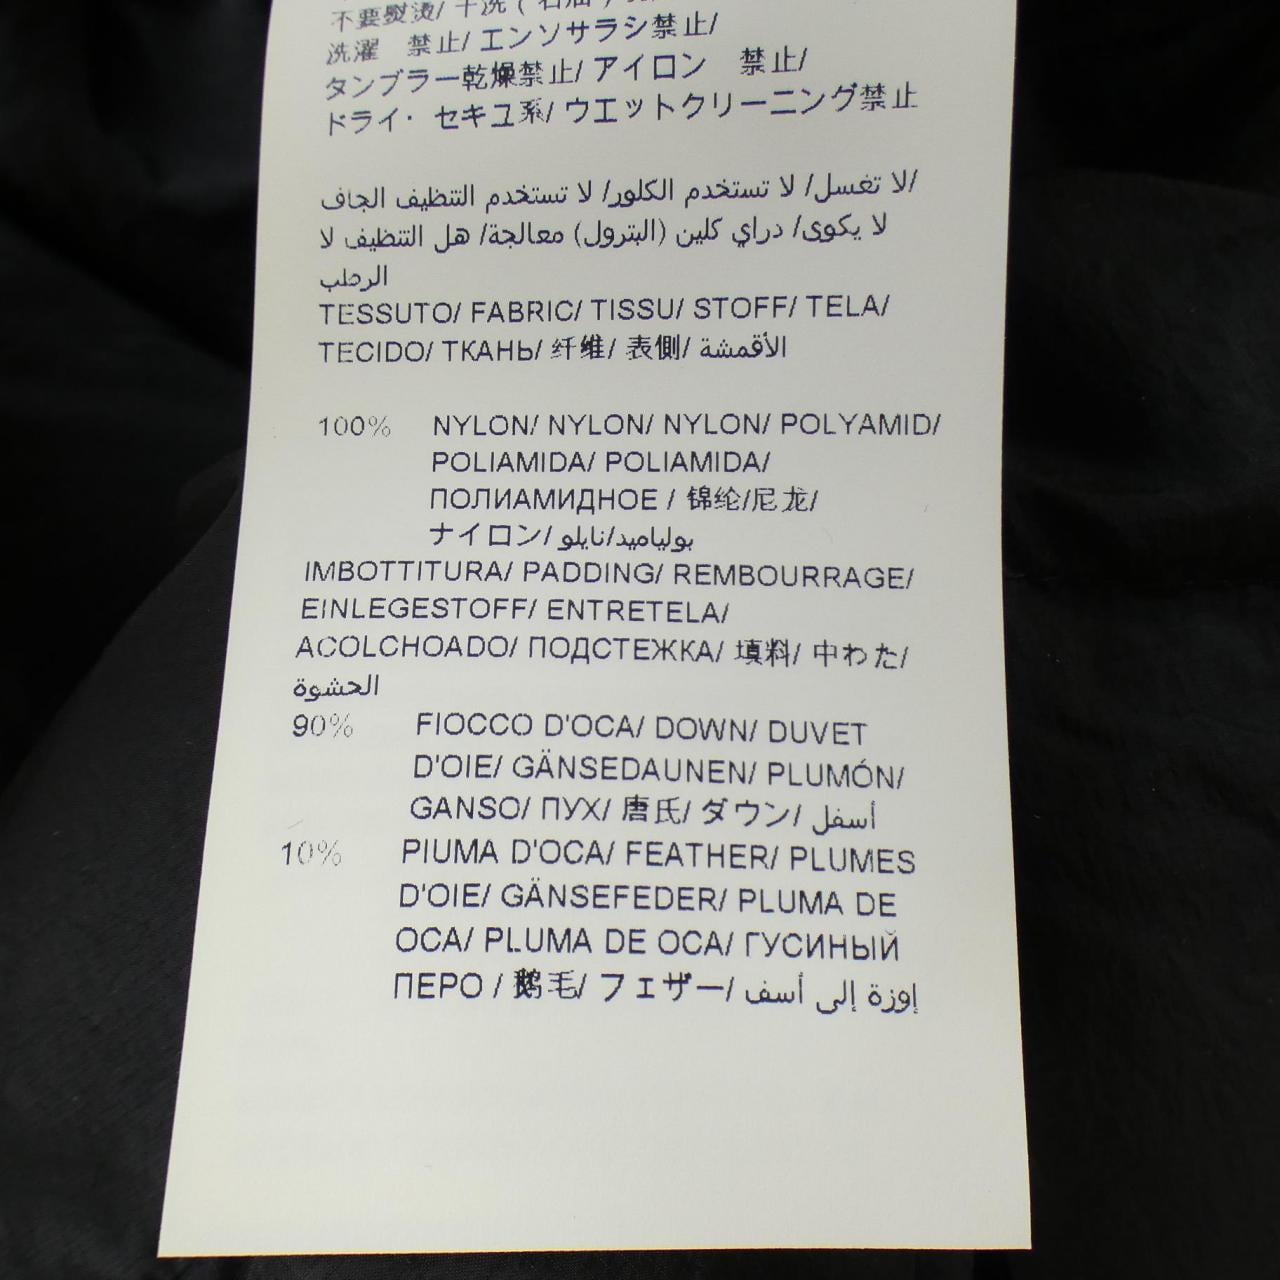 不要熨烫/ 干洗 ( 石油 )
洗濯 禁止/ エンソサラシ禁止/
タンブラー乾燥禁止/ アイロン 禁止/
ドライ・ セキユ系/ ウエットクリーニング禁止
لا تغسل/ لا تستخدم الكلور/ لا تستخدم التنظيف الجاف/
لا يكوى/ دراي كلين (البترول) معالجة/ هل التنظيف لا
الرطب
TESSUTO/ FABRIC/ TISSU/ STOFF/ TELA/
TECIDO/ ТКАНЬ/ 纤维/ 表側/ الأقمشة
100% NYLON/ NYLON/ NYLON/ POLYAMID/
POLIAMIDA/ POLIAMIDA/
ПОЛИАМИДНОЕ / 锦纶/尼龙/
ナイロン/ بولياميد/نايلو
IMBOTTITURA/ PADDING/ REMBOURRAGE/
EINLEGESTOFF/ ENTRETELA/
ACOLCHOADO/ ПОДСТЕЖКА/ 填料/ 中わた/
الحشوة
90% FIOCCO D'OCA/ DOWN/ DUVET
D'OIE/ GÄNSEDAUNEN/ PLUMÓN/
GANSO/ ПУХ/ 唐氏/ ダウン/ أسفل
10% PIUMA D'OCA/ FEATHER/ PLUMES
D'OIE/ GÄNSEFEDER/ PLUMA DE
OCA/ PLUMA DE OCA/ ГУСИНЫЙ
ПЕРО / 鹅毛/ フェザー/ إوزة إلى أسف